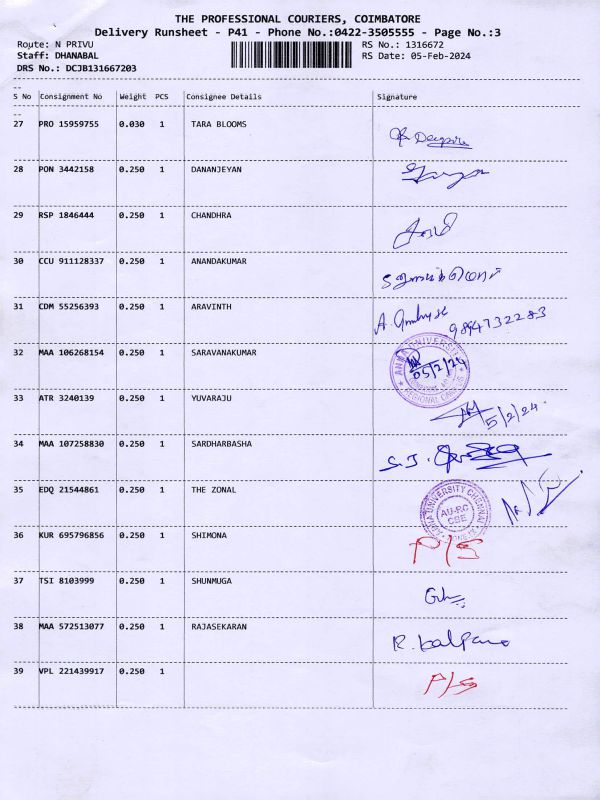 THE PROFESSIONAL COURIERS, COIMBATORE
Delivery Runsheet - P41 - Phone No.:0422-3505555 - Page No.:3
Route: N PRIVU RS No.: 1316672
Staff: DHANABAL RS Date: 05-Feb-2024
DRS No.: DCJB131667203
S No Consignment No Weight PCS Consignee Details Signature
27 PRO 15959755 0.030 1 TARA BLOOMS
28 PON 3442158 0.250 1 DANANJEYAN
29 RSP 1846444 0.250 1 CHANDHRA
30 CCU 911128337 0.250 1 ANANDAKUMAR
31 CDM 55256393 0.250 1 ARAVINTH A.
32 MAA 106268154 0.250 1 SARAVANAKUMAR ANNA UNIVERSITY 05/2/24 REGIONAL CAMPUS
33 ATR 3240139 0.250 1 YUVARAJU 5/2/24
34 MAA 107258830 0.250 1 SARDHARBASHA S.J.
35 EDQ 21544861 0.250 1 THE ZONAL ANNA UNIVERSITY CHENNAI AU-RC CBE
36 KUR 695796856 0.250 1 SHIMONA P/S
37 TSI 8103999 0.250 1 SHUNMUGA
38 MAA 572513077 0.250 1 RAJASEKARAN R. Kalpana
39 VPL 221439917 0.250 1 P/S